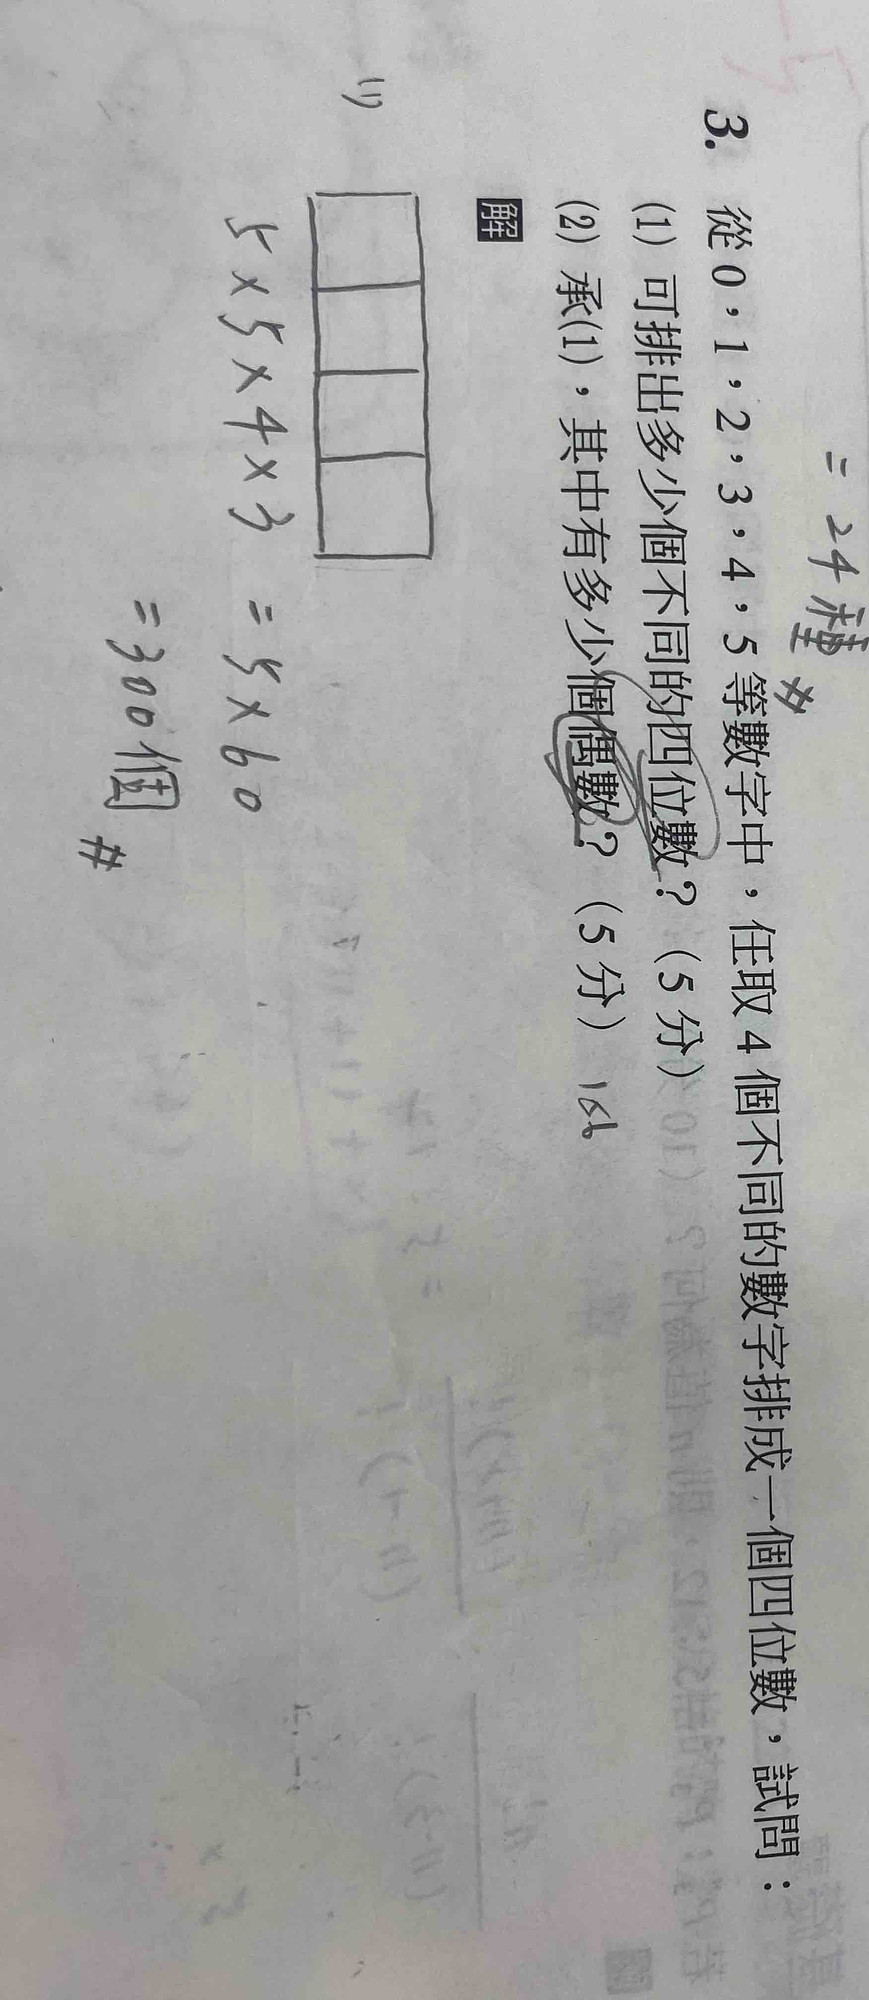 = 24種 #
3. 從0，1，2，3，4，5等數字中，任取4個不同的數字排成一個四位數，試問：
(1) 可排出多少個不同的四位數？（5分）
(2) 承(1)，其中有多少個偶數？（5分）
解
(1)
5×5×4×3 = 5×60
= 300個 #